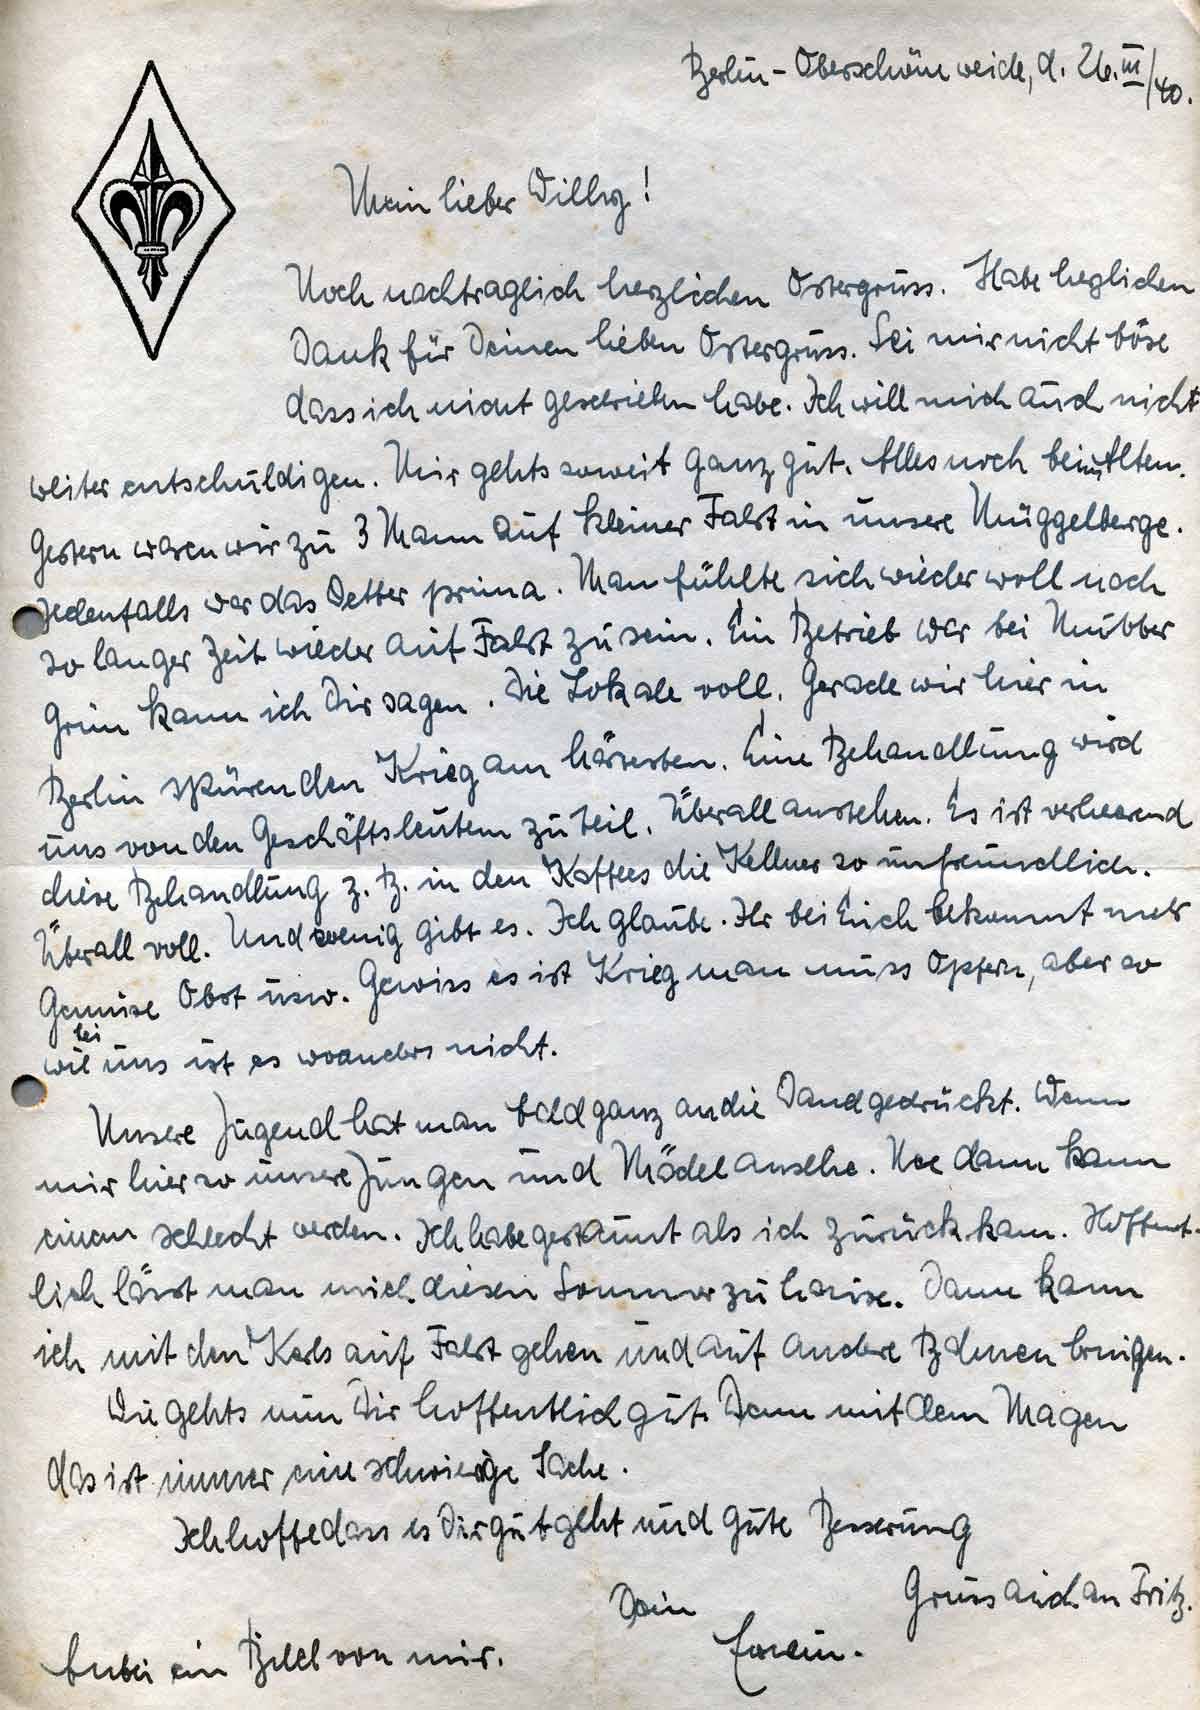 Berlin-Oberschöneweide, d. 26. III/40.
Mein lieber Willy!
Noch nachtraglich herzlichen Ostergruss. Habe herzlichen
Dank für Deinen lieben Ostergruss. Sei mir nicht böse
dass ich nicht geschrieben habe. Ich will mich auch nicht
weiter entschuldigen. Mir gehts soweit ganz gut. Alles noch beim Alten.
Gestern waren wir zu 3 Mann auf kleiner Fahrt in unsere Müggelberge.
Jedenfalls war das Wetter prima. Man fühlte sich wieder woll nach
so langer Zeit wieder auf Fahrt zu sein. Ein Betrieb war bei Mutter
Grün kann ich Dir sagen. Die Lokale voll. Gerade wir hier in
Berlin spüren den Krieg am härtesten. Eine Behandlung wird
uns von den Geschäftsleuten zu teil. Überall anstehen. Es ist verheerend
diese Behandlung z. B. in den Kaffees die Kellner so unfreundlich.
Überall voll. Und wenig gibt es. Ich glaube. Ihr bei Euch bekommt mehr
Gemüse Obst usw. Gewiss es ist Krieg man muss Opfern, aber so
wie bei uns ist es woanders nicht.
Unsere Jugend hat man bald ganz an die Wand gedrückt. Wenn
mir hier so unsere Jungen und Mädel ansehe. Nee dann kann
einem schlecht werden. Ich habe gestaunt als ich zurück kam. Hoffent-
lich lässt man mich diesen Sommer zu hause. Dann kann
ich mit den Kerls auf Fahrt gehen und auf andere Bahnen bringen.
Wie gehts nun Dir hoffentlich gut. Denn mit dem Magen
das ist immer eine schwierige Sache.
Ich hoffe dass es Dir gut geht und gute Besserung
Gruss auch an Fritz.
Dein
Erwin.
Anbei ein Bild von mir.